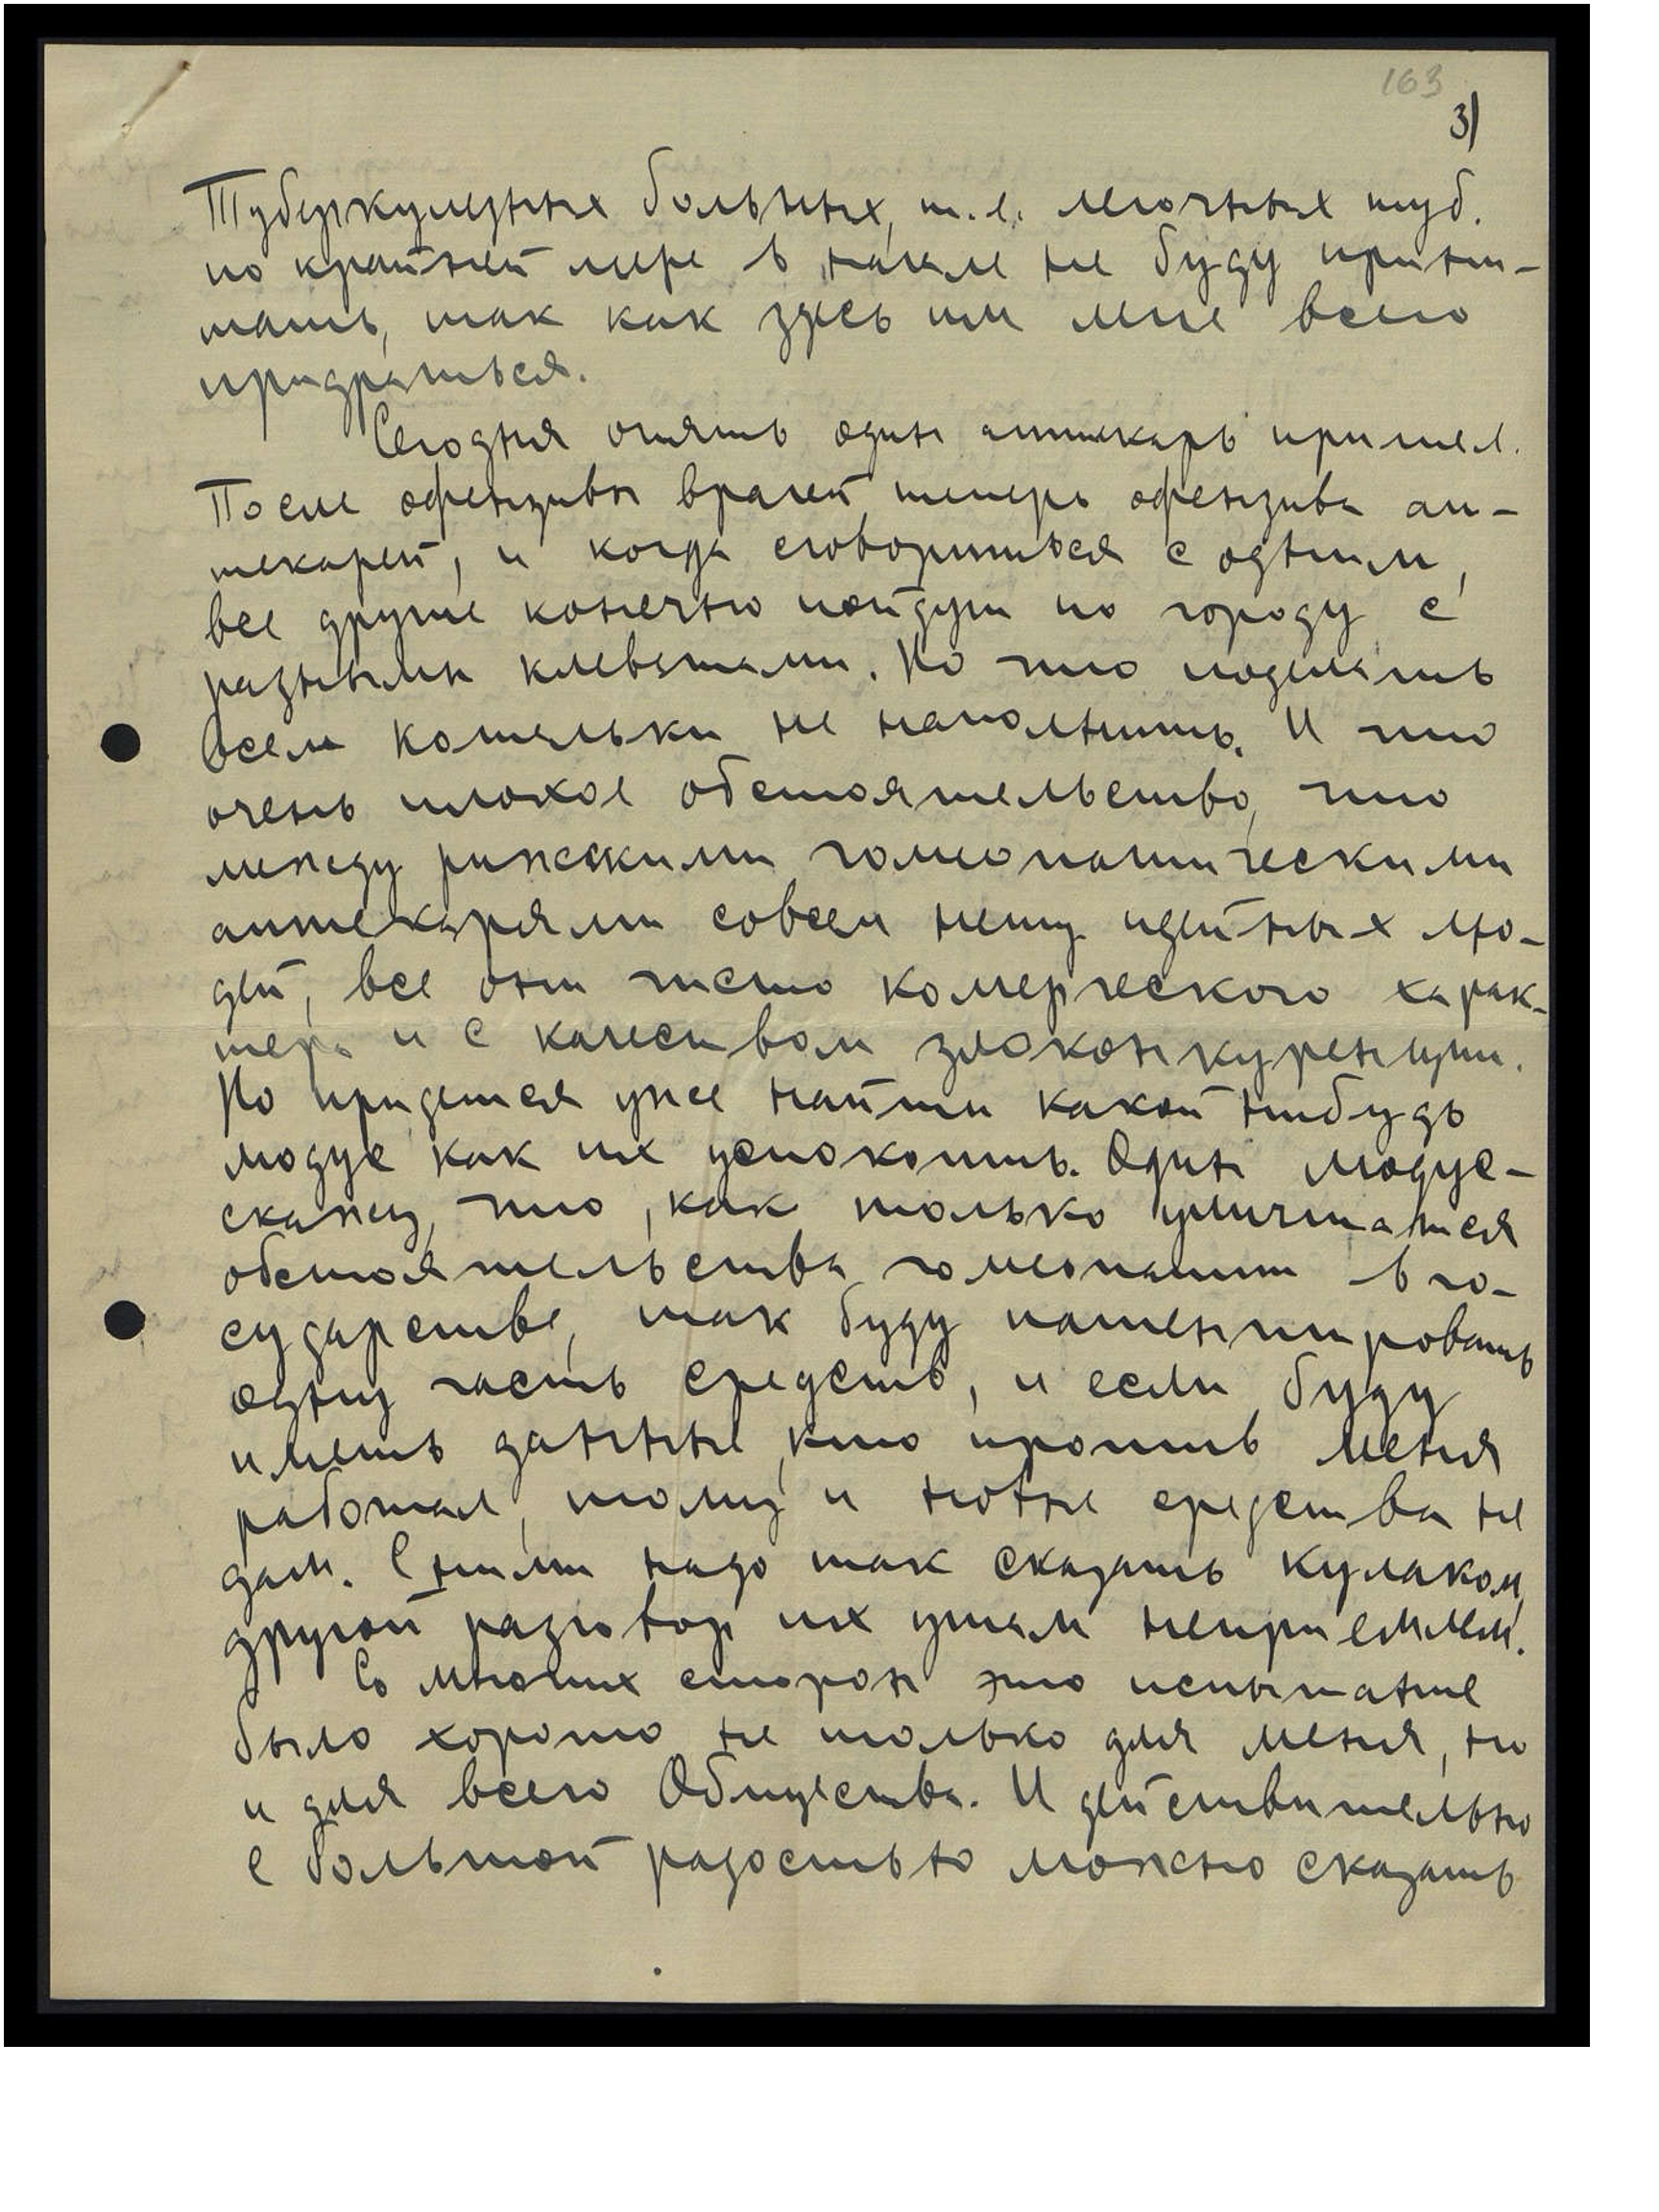 163
3)
Туберкулезных больных, т.е. легочных туб.
по крайней мере в начале не буду прини-
мать, так как здесь им легче всего
придраться.
Сегодня опять один аптекарь пришел.
После офензивы врачей, теперь офензива ап-
текарей, и когда сговоришься с одним,
все другие конечно пойдут по городу с
разными клеветами. Но что поделать
всем кошельки не наполнить. И что
очень плохое обстоятельство, что
между рижскими гомеопатическими
аптекарями совсем нету идейных лю-
дей, все они чисто комерческого харак-
тера и с качеством злоконкуренции.
Но придется уже найти какой нибудь
модус как их успокоить. Один модус -
скажу, что, как только улучшатся
обстоятельства гомеопатии в го-
сударстве, так буду патентировать
одну часть средств, и если буду
иметь данные, кто против меня
работал, тому и новые средства не
дам. С ними надо так сказать кулаком,
другой разговор их ушам неприемлем.
Со многих сторон это испытание
было хорошо не только для меня, но
и для всего Общества. И действительно
с большой радостью можно сказать